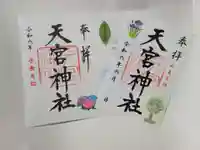 奉拝
天宮神社
令和六年
奉拝
天宮神社
令和六年六月